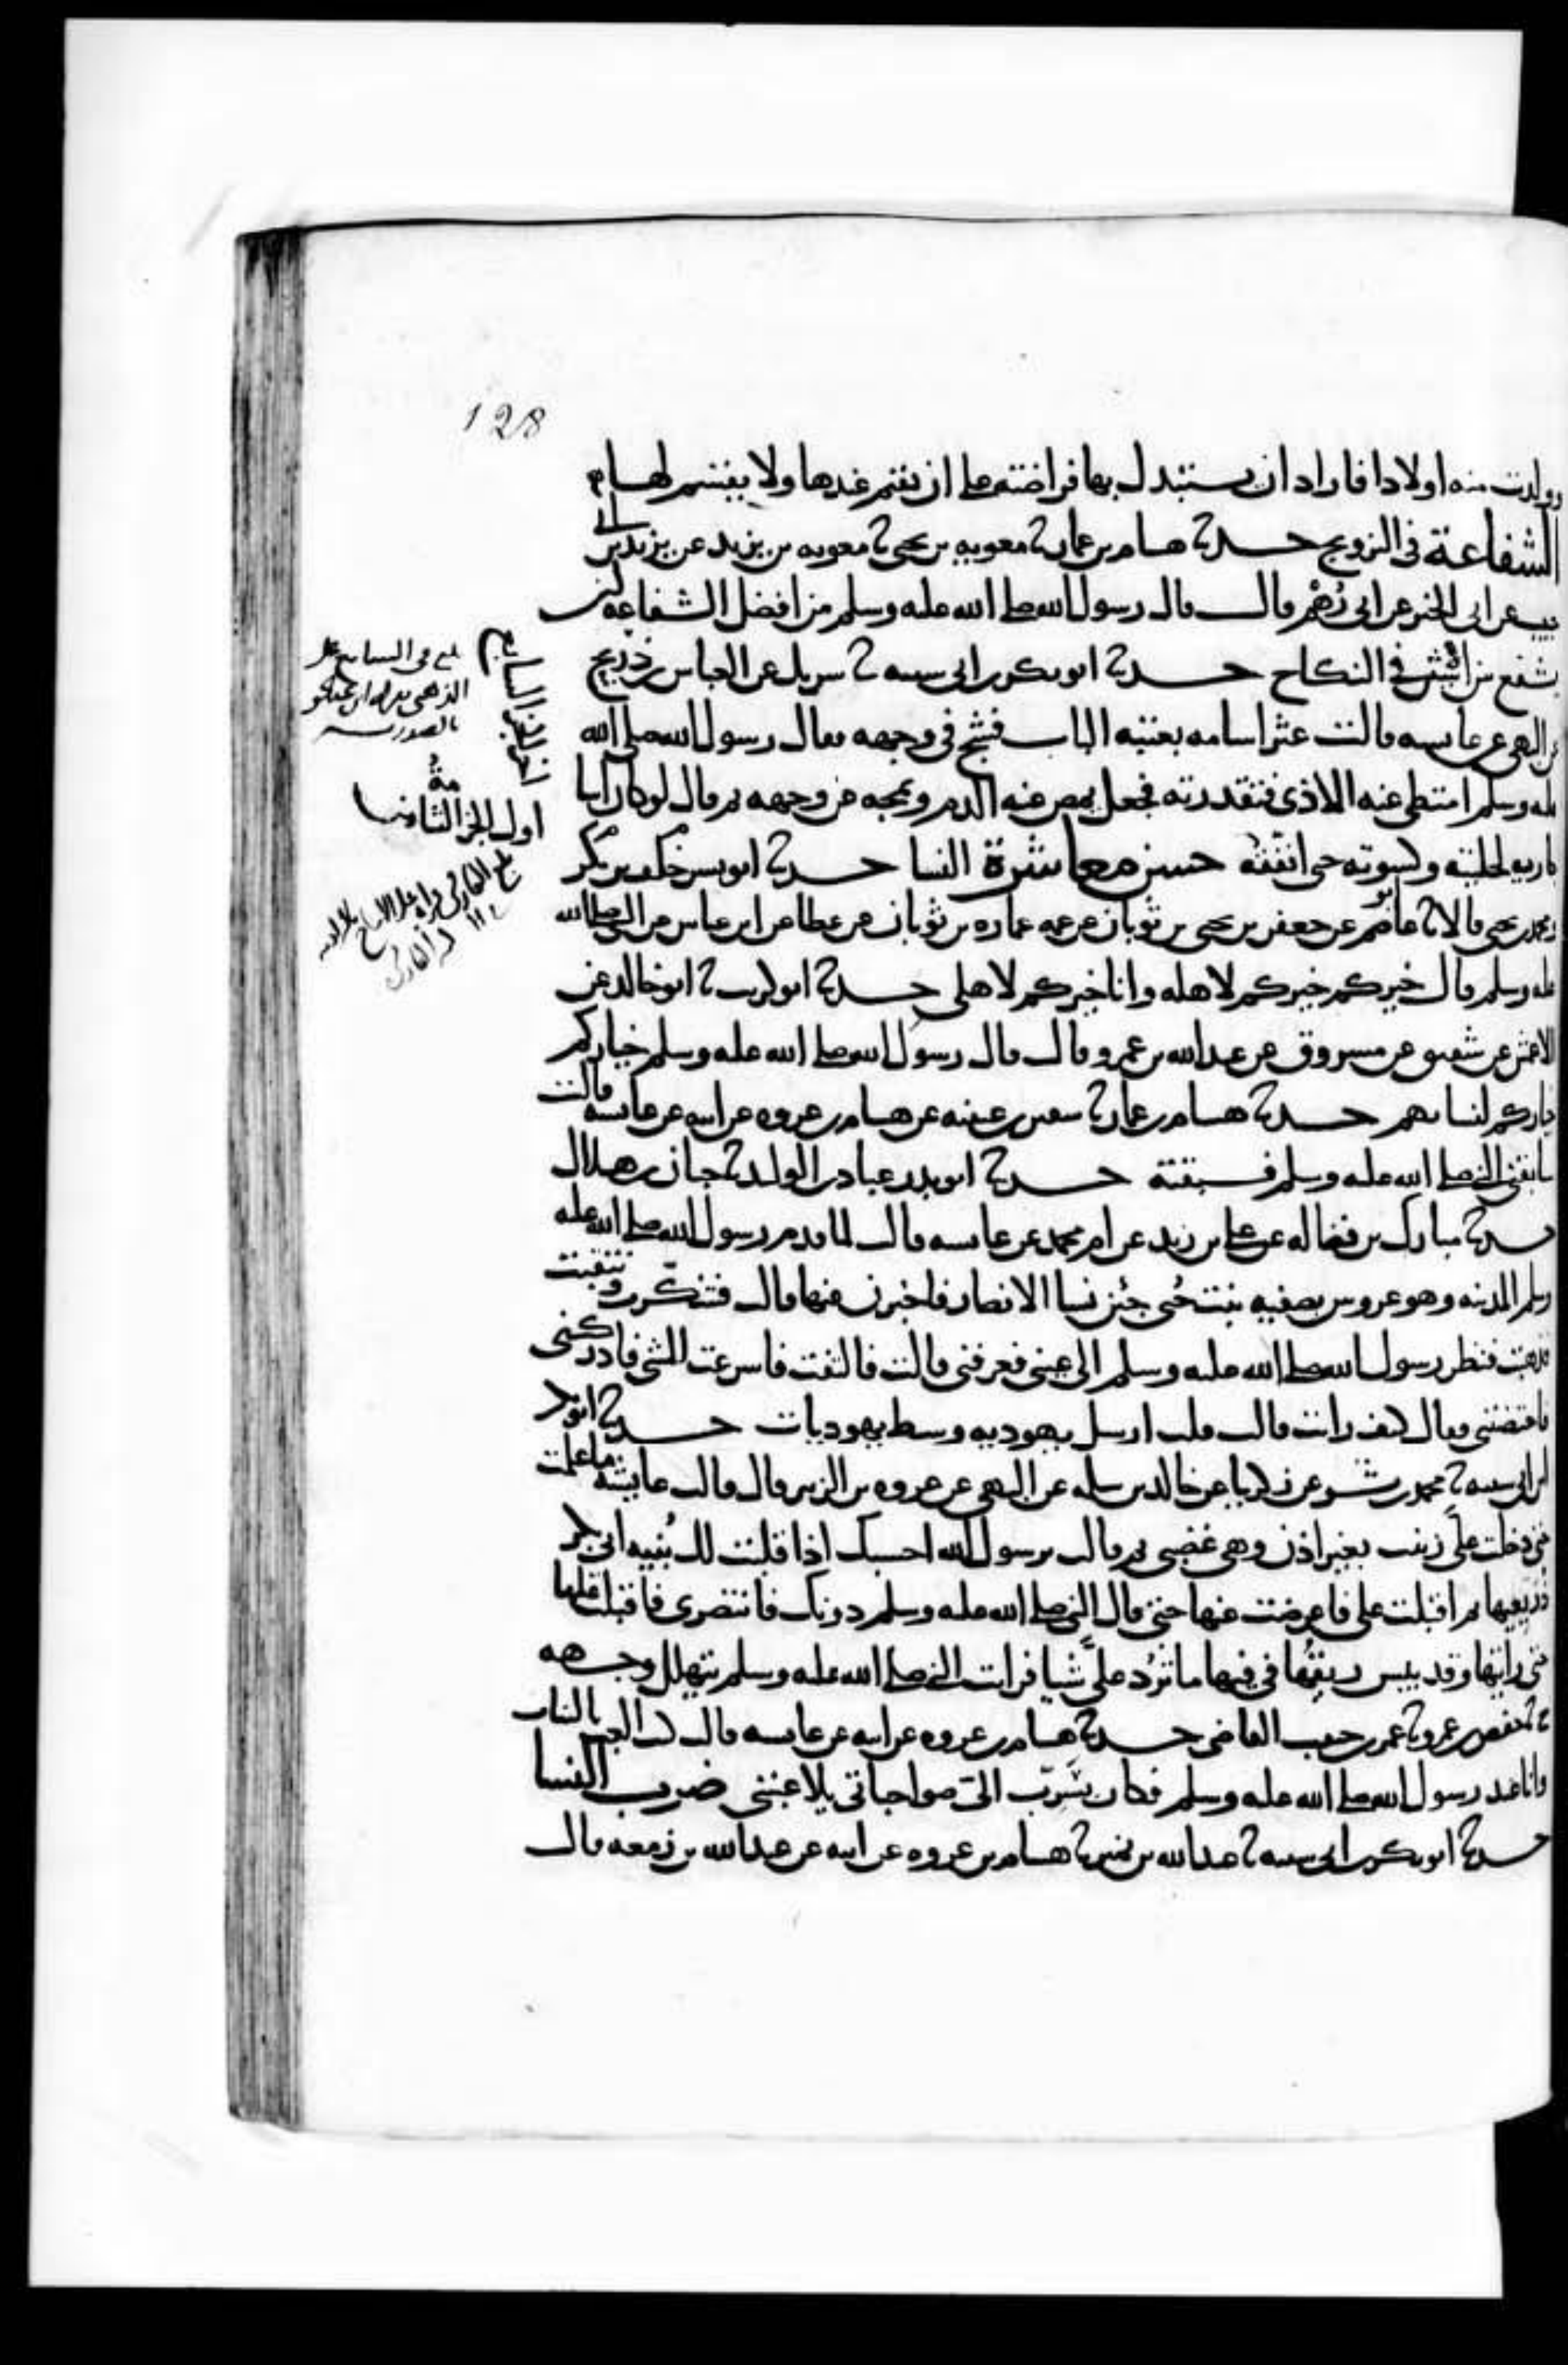 128
وولدت منه اولادا فاراد ان يستبدل بها فراضته على ان تقيم عندها ولا يقسم لها
الشفاعة في التزويج حدثنا هسام بن عمار ثنا معويه بن يحيى ثنا معويه بن يزيد عن يزيد بن ابي
حبيب عن ابي الخير عن ابي رُهْم قال قال رسول الله صلى الله عليه وسلم من افضل الشفاعه ان
يشفع بين الاثنين في النكاح حدثنا ابو بكر بن ابي سيبه ثنا سريك عن العباس بن ذريح
عن البهي عن عايسه قالت عثر اسامه بعتبه الباب فشج في وجهه فقال رسول الله صلى الله
عليه وسلم اميطي عنه الاذى فتقذرته فجعل يمص عنه الدم ويمجه عن وجهه ثم قال لو كان اسامة
جاريه لحليته وكسوته حتى انفقه حسن معاشرة النسا حدثنا ابو بسر بكر بن خلف
ومحمد بن يحيى قالا ثنا ابو عاصم عن جعفر بن يحيى بن ثوبان عن عمه عماره بن ثوبان عن عطا عن ابن عباس عن النبي صلى الله
عليه وسلم قال خيركم خيركم لاهله وانا خيركم لاهلي حدثنا ابو كريب ثنا ابو خالد عن
الاعمش عن شقيق عن مسروق عن عبد الله بن عمرو قال قال رسول الله صلى الله عليه وسلم خياركم
خياركم لنسائهم حدثنا هسام بن عمار ثنا سفين بن عيينه عن هسام بن عروه عن ابيه عن عايسه قالت
سابقني النبي صلى الله عليه وسلم فسبقته حدثنا ابو بدر عباد بن الوليد ثنا حبان بن هلال
حدثنا مبارك بن فضاله عن علي بن زيد عن ام محمد عن عايسه قالت لما قدم رسول الله صلى الله عليه
وسلم المدينه وهو عروس بصفيه بنت حُيي جئن نسا الانصار فاخبرن عنها قالت فتنكّرت وتنقبت
فذهبت فنظر رسول الله صلى الله عليه وسلم الى عيني فعرفني قالت فالتفت فاسرعت المشي فادركني
فاحتضنني فقال كيف رايت قالت قلت ارسل يهوديه وسط يهوديات حدثنا ابو بكر
بن ابي سيبه ثنا محمد بن بشر عن زكريا عن خالد بن سلمه عن البهي عن عروه بن الزبير قال قالت عايشه ما علمت
حتى دخلت عليّ زينب بغير اذن وهي غضبى ثم قالت يرسول الله احسبك اذا قلبت لك بُنيه ابي بكر
ذريعيها ثم اقبلت علي فاعرضت عنها حتى قال النبي صلى الله عليه وسلم دونك فانتصري فاقبلت عليها
حتى رايتها وقد يبس ريقُها في فيها ما تردُ عليّ شيا فرايت النبي صلى الله عليه وسلم يتهلل وجهه
ثنا حفص بن عمرو ثنا عمر بن حبيب القاضي حدثنا هسام بن عروه عن ابيه عن عايسه قالت كنت العب بالبنات
وانا عند رسول الله صلى الله عليه وسلم فكان يُسَرِّب اليّ صواحباتي يلاعبنني ضرب النسا
حدثنا ابو بكر بن ابي سيبه ثنا عبد الله بن نمير ثنا هسام بن عروه عن ابيه عن عبد الله بن زمعه قال
اول الجز الثامن